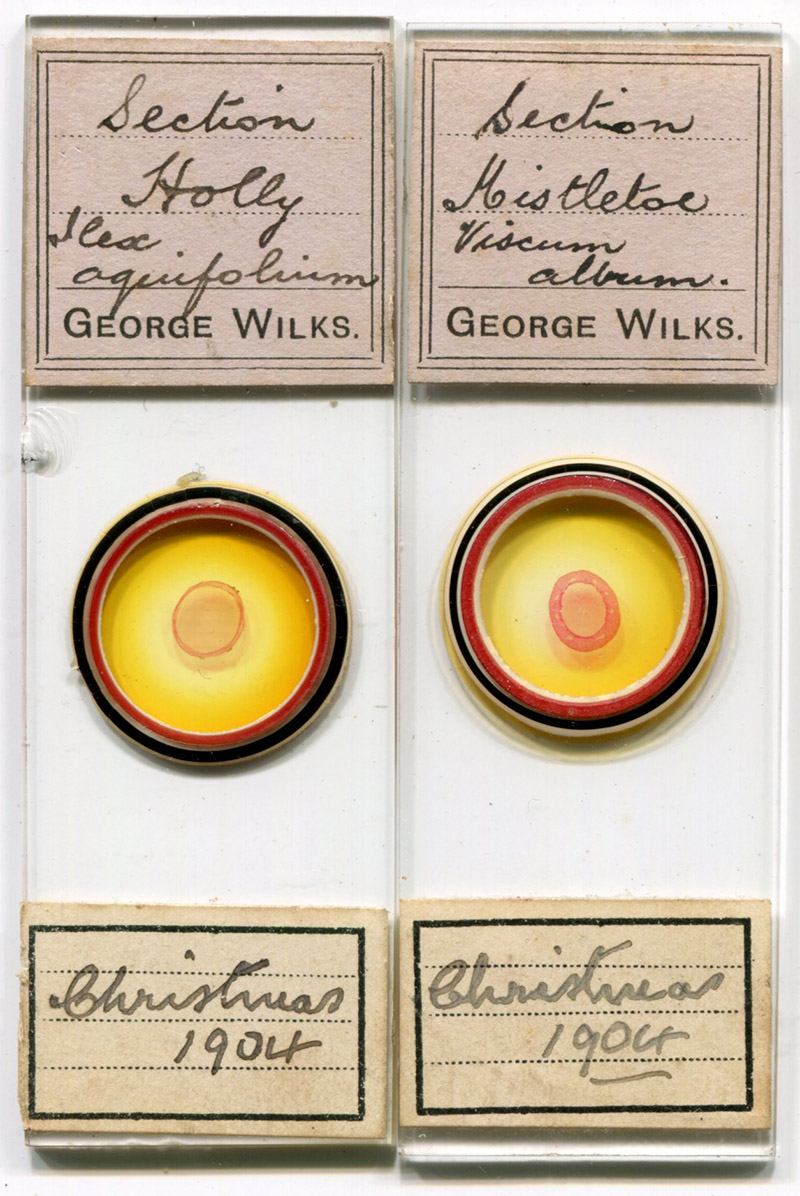 Section
Holly
Ilex
aquifolium
GEORGE WILKS.
Christmas
1904
Section
Mistletoe
Viscum
album.
GEORGE WILKS.
Christmas
1904